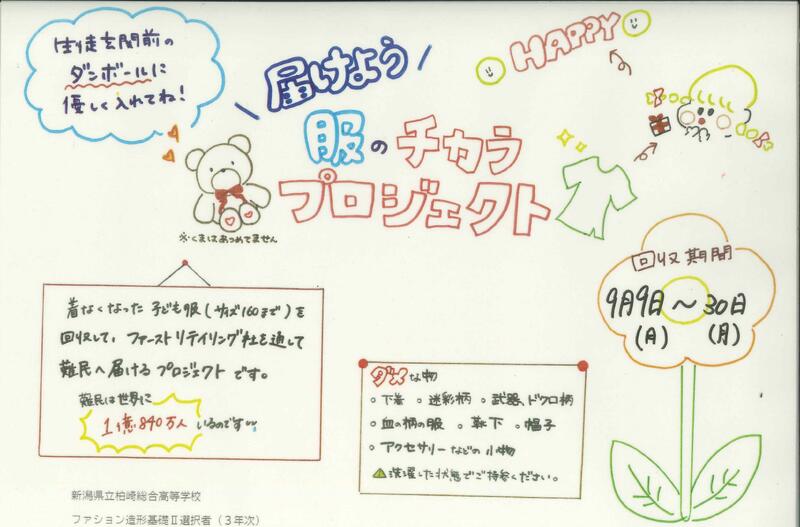 生徒玄関前の
ダンボールに
優しく入れてね!
届けよう
服のチカラ
プロジェクト
HAPPY
※くまはあつめてません
回収期間
9月9日～30日
(月) (月)
着なくなった子ども服(サイズ160まで)を
回収して、ファーストリテイリング社を通して
難民へ届けるプロジェクトです。
難民は世界に
1億840万人いるのです
ダメな物
○下着 ○迷彩柄 ○武器、ドクロ柄
○血の柄の服 ○靴下 ○帽子
○アクセサリーなどの小物
⚠洗濯した状態でご持参ください。
新潟県立柏崎総合高等学校
ファション造形基礎Ⅱ選択者(3年次)